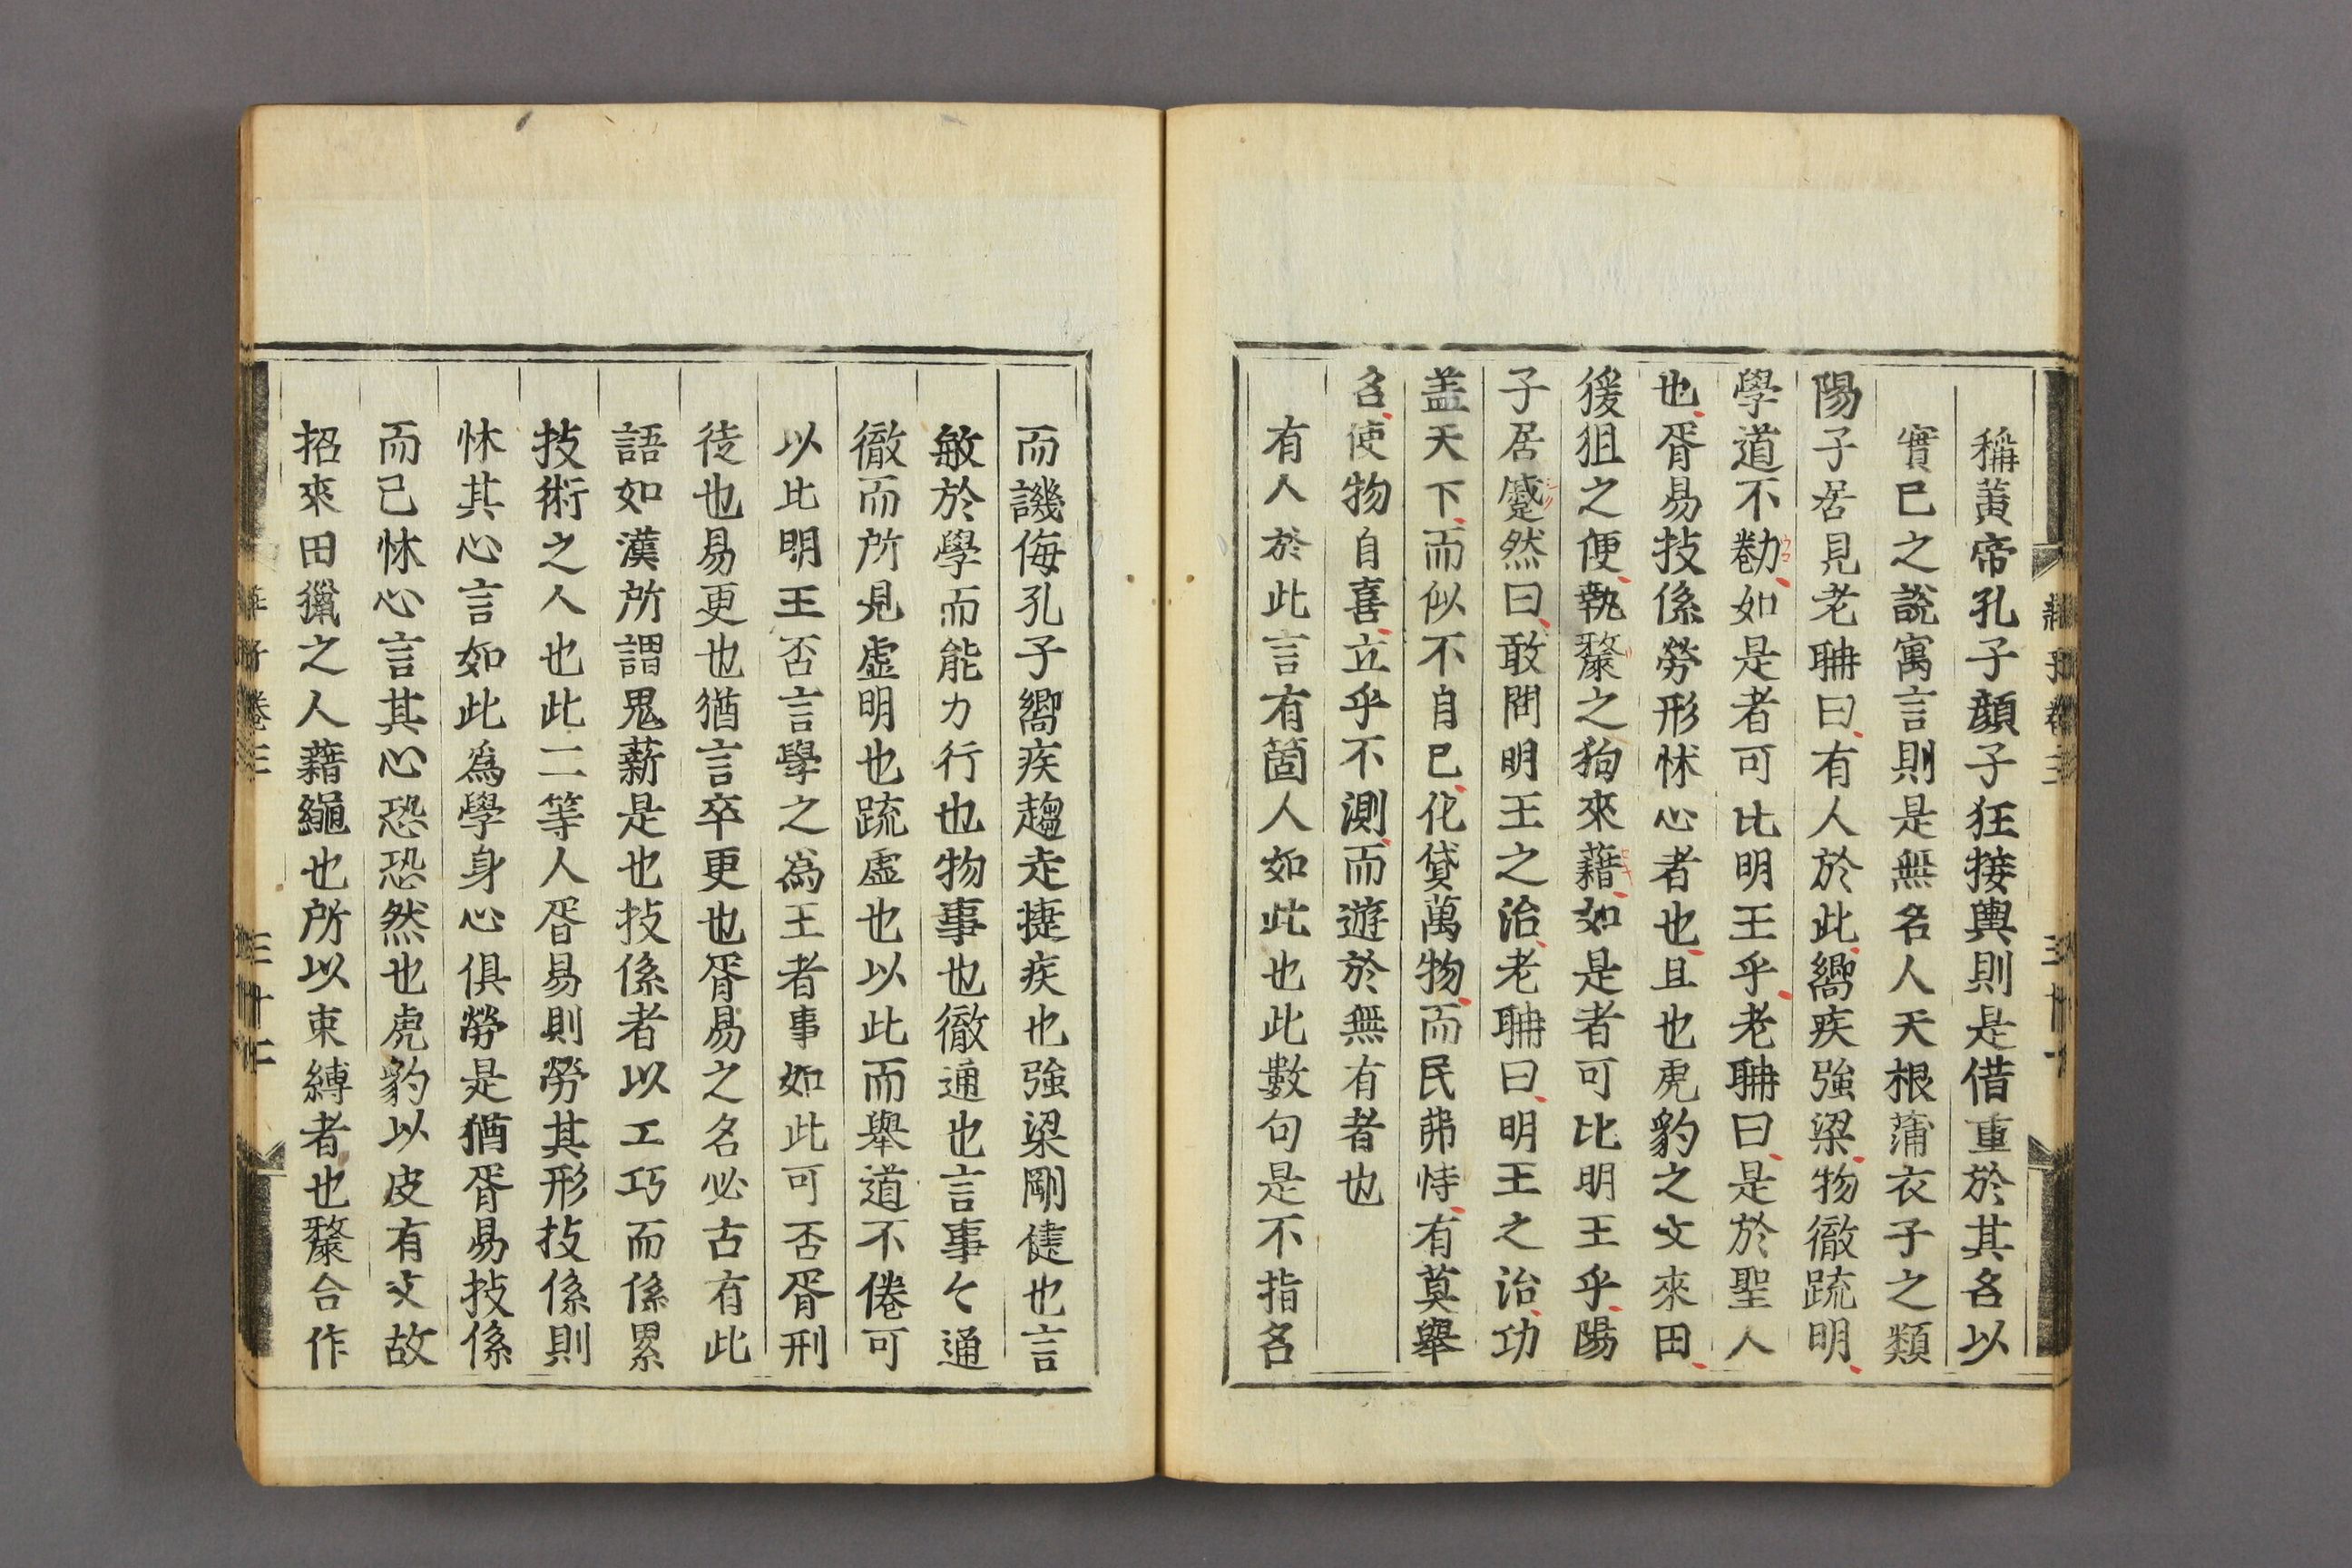 稱黃帝孔子顔子狂接輿則是借重於其名以
實已之說寓言則是無名人天根蒲衣子之類
陽子居見老聃曰有人於此嚮疾強梁物徹疏明
學道不勌如是者可比明王乎老聃曰是於聖人
也胥易技係勞形怵心者也且也虎豹之文來田
猨狙之便執斄之狗來藉如是者可比明王乎陽
子居蹵然曰敢問明王之治老聃曰明王之治功
盖天下而似不自已化貸萬物而民弗恃有莫舉
名使物自喜立乎不測而遊於無有者也
有人於此言有箇人如此也此數句是不指名
而譏侮孔子嚮疾趨走捷疾也強梁剛健也言
敏於學而能力行也物事也徹通也言事〻通
徹而所見虛明也疏虛也以此而舉道不倦可
以比明王否言學之為王者事如此可否胥刑
徒也易更也猶言卒更也胥易之名必古有此
語如漢所謂鬼薪是也技係者以工巧而係累
技術之人也此二等人胥易則勞其形技係則
怵其心言如此為學身心俱勞是猶胥易技係
而已怵心言其心恐恐然也虎豹以皮有文故
招來田獵之人藉繩也所以束縛者也斄合作
莊子卷三
三十二